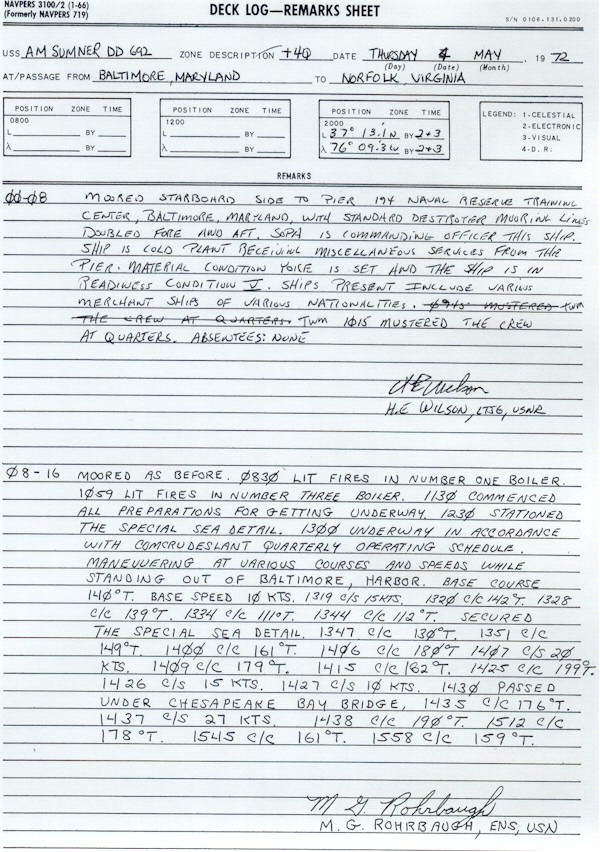 NAVPERS 3100/2 (1-66)
(Formerly NAVPERS 719)
DECK LOG—REMARKS SHEET
S/N 0106-131-0200
USS AM SUMNER DD 692 ZONE DESCRIPTION +4Q DATE THURSDAY 4 MAY, 1972
(Day) (Date) (Month)
AT/PASSAGE FROM BALTIMORE, MARYLAND TO NORFOLK, VIRGINIA
POSITION ZONE TIME
0800
L BY
λ BY
POSITION ZONE TIME
1200
L BY
λ BY
POSITION ZONE TIME
2000
L 37° 13.1N BY 2+3
λ 76° 09.3W BY 2+3
LEGEND: 1-CELESTIAL
2-ELECTRONIC
3-VISUAL
4-D.R.
REMARKS
ØØ-Ø8 MOORED STARBOARD SIDE TO PIER 194 NAVAL RESERVE TRAINING
CENTER, BALTIMORE, MARYLAND, WITH STANDARD DESTROYER MOORING LINES
DOUBLED FORE AND AFT. SOPA IS COMMANDING OFFICER THIS SHIP.
SHIP IS COLD PLANT RECEIVING MISCELLANEOUS SERVICES FROM THE
PIER. MATERIAL CONDITION YOKE IS SET AND THE SHIP IS IN
READINESS CONDITION V. SHIPS PRESENT INCLUDE VARIUS
MERCHANT SHIPS OF VARIOUS NATIONALITIES. Ø945 MUSTERED TWM
THE CREW AT QUARTERS. TWM 1Ø15 MUSTERED THE CREW
AT QUARTERS. ABSENTEES: NONE
HE Wilson
H.E WILSON, LTJG, USNR
Ø8-16 MOORED AS BEFORE. Ø83Ø LIT FIRES IN NUMBER ONE BOILER.
1Ø59 LIT FIRES IN NUMBER THREE BOILER. 113Ø COMMENCED
ALL PREPARATIONS FOR GETTING UNDERWAY. 123Ø STATIONED
THE SPECIAL SEA DETAIL. 13ØØ UNDERWAY IN ACCORDANCE
WITH COMCRUDESLANT QUARTERLY OPERATING SCHEDULE.
MANEUVERING AT VARIOUS COURSES AND SPEEDS WHILE
STANDING OUT OF BALTIMORE, HARBOR. BASE COURSE
14Ø°T. BASE SPEED 1Ø KTS. 1319 C/S 15KTS. 132Ø C/C 142°T. 1328
C/C 139°T. 1334 C/C 111°T. 1344 C/C 112°T. SECURED
THE SPECIAL SEA DETAIL. 1347 C/C 13Ø°T. 1351 C/C
149°T. 14ØØ C/C 161°T. 14Ø6 C/C 18Ø°T 14Ø7 C/S 2Ø
KTS. 14Ø9 C/C 179°T. 1415 C/C 182°T. 1425 C/C 199°T.
1426 C/S 15 KTS. 1427 C/S 1Ø KTS. 143Ø PASSED
UNDER CHESAPEAKE BAY BRIDGE, 1435 C/C 176°T.
1437 C/S 27 KTS. 1438 C/C 19Ø°T. 1512 C/C
178°T. 1545 C/C 161°T. 1558 C/C 159°T.
M G Rohrbaugh
M. G. ROHRBAUGH, ENS, USN